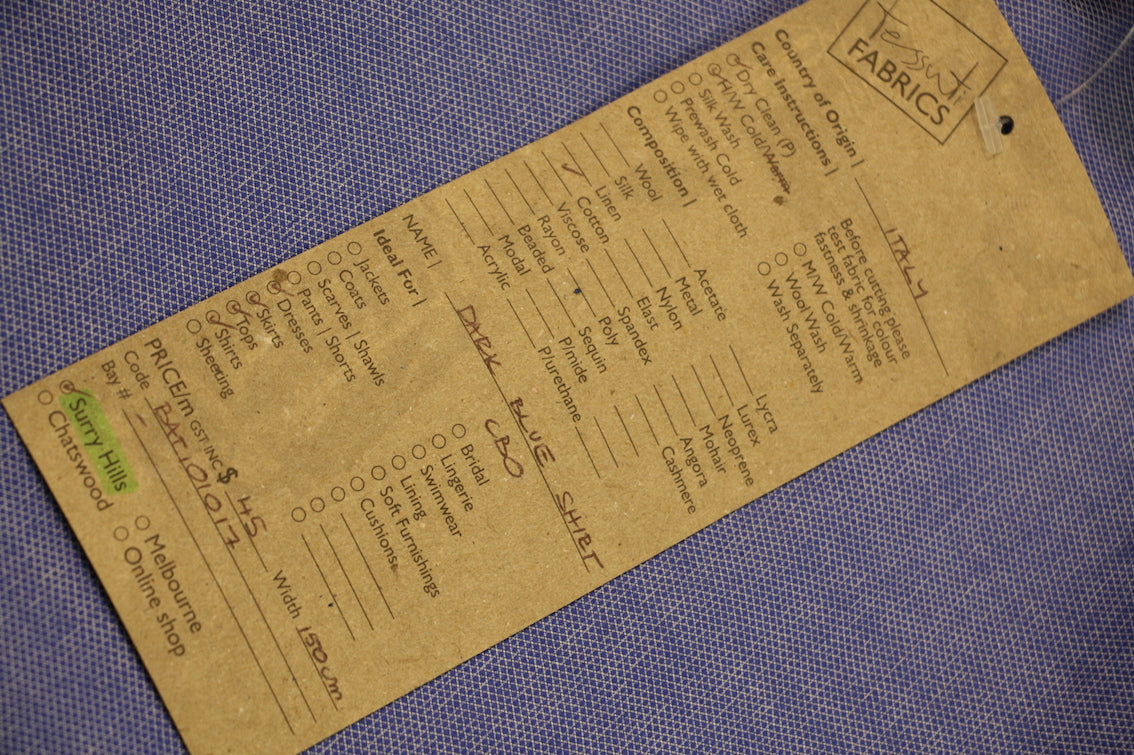 tessuti
FABRICS
Country of Origin | ITALY
Care Instructions |
Dry Clean (P)
H/W Cold/Warm
Silk Wash
Prewash Cold
Wipe with wet cloth
Before cutting please
test fabric for colour
fastness & shrinkage
M/W Cold/Warm
Wool Wash
Wash Separately
Composition |
Wool
Silk
Linen
Cotton
Viscose
Rayon
Beaded
Modal
Acrylic
Acetate
Metal
Nylon
Elast
Spandex
Poly
Sequin
P/mide
P/urethane
Lycra
Lurex
Neoprene
Mohair
Angora
Cashmere
NAME | DARK BLUE SHIRT
CBO
Ideal For |
Jackets
Coats
Scarves | Shawls
Pants | Shorts
Dresses
Skirts
Tops
Shirts
Sheeting
Bridal
Lingerie
Swimwear
Lining
Soft Furnishings
Cushions
PRICE/m GST INC $ 45 Width 150cm
Code BAT101017
Bay # -
Surry Hills
Chatswood
Melbourne
Online shop